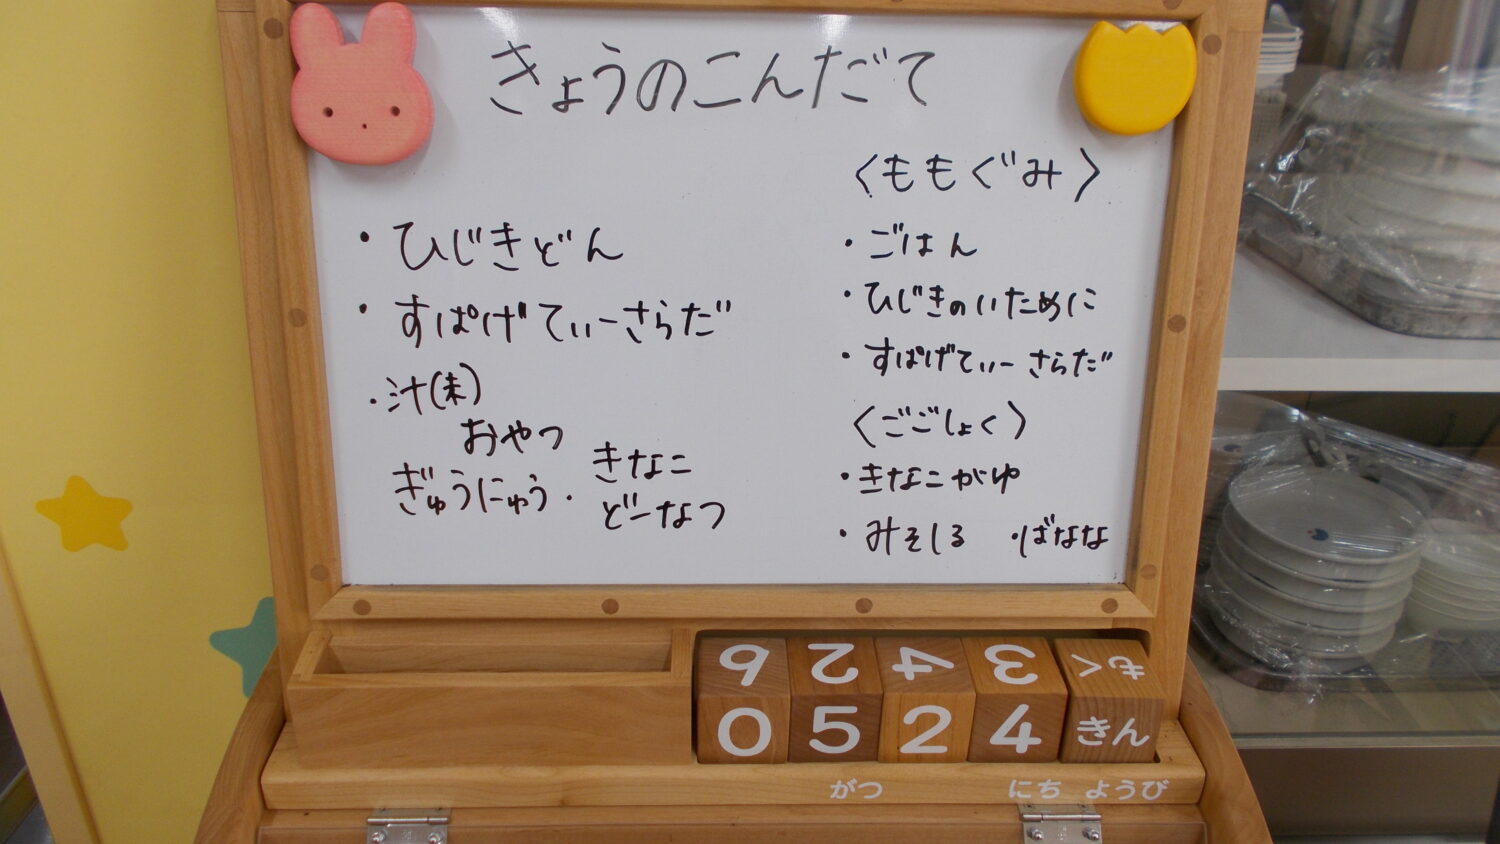 きょうのこんだて
・ひじきどん
・すぱげてぃーさらだ
・汁(未)
おやつ
ぎゅうにゅう・きなこ
どーなつ
〈ももぐみ〉
・ごはん
・ひじきのいために
・すぱげてぃーさらだ
〈ごごしょく〉
・きなこがゆ
・みそしる ・ばなな
9 2 4 3 もく
0 5 2 4 きん
がつ にち ようび